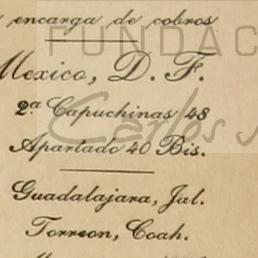 encarga de cobros
FUNDAC
Mexico, D. F.
2a Capuchinas 48
Carlos S
Apartado 40 Bis.
Guadalajara, Jal.
Torreon, Coah.